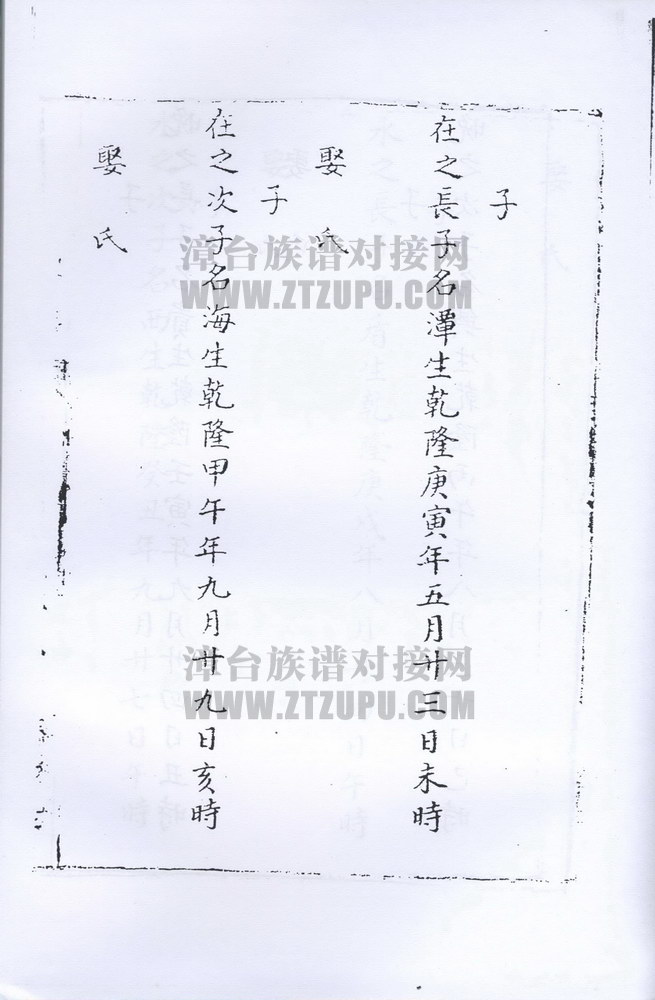 子
在之長子名潭生乾隆庚寅年五月廿三日未時
娶 氏
子
在之次子名海生乾隆甲午年九月卅九日亥時
娶 氏
漳台族谱对接网
WWW.ZTZUPU.COM
漳台族谱对接网
WWW.ZTZUPU.COM